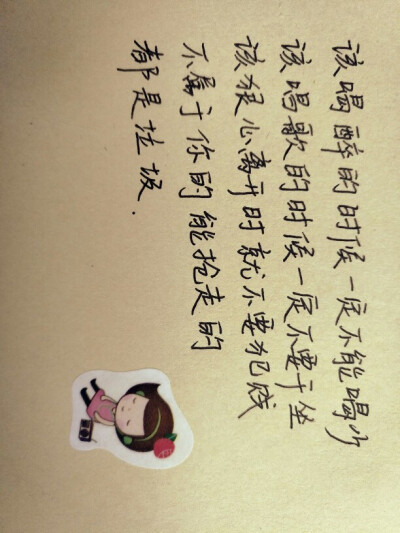 该喝醉的时候一定不能喝少
该唱歌的时候一定不要干坐
该狠心离开时就不要犯贱
不属于你的能抢走的
都是垃圾.